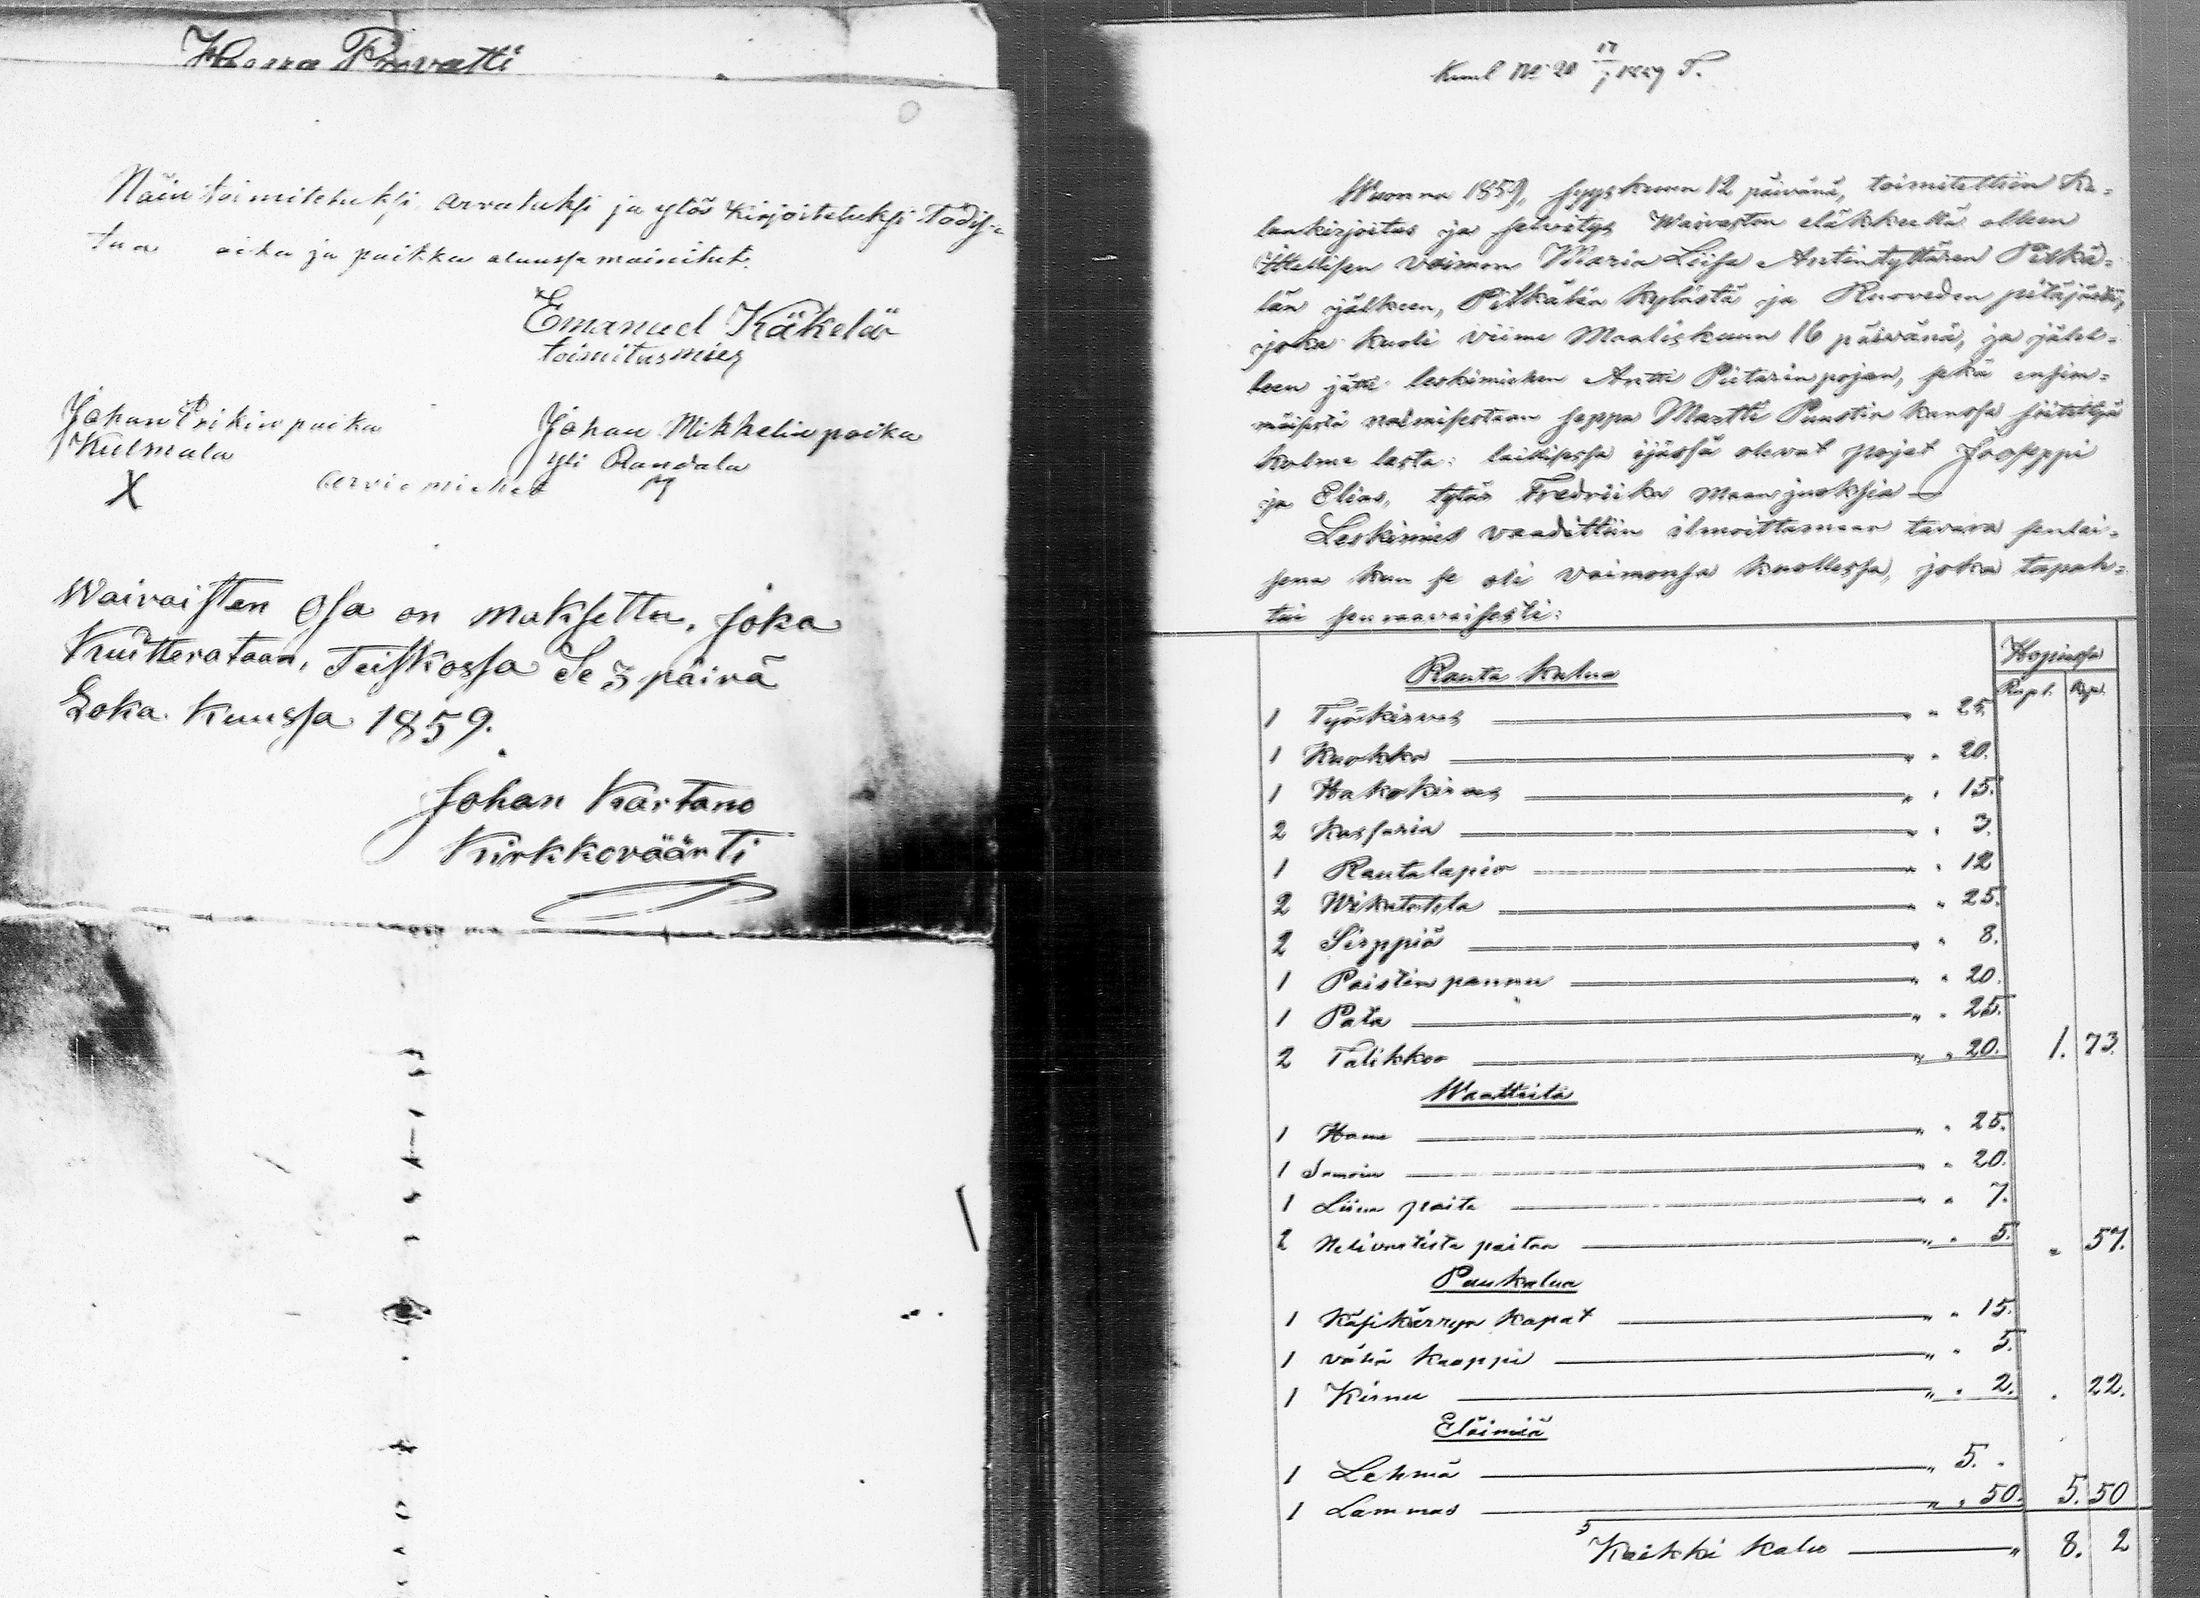 Herra Provasti
Näin toimitetuksi, arvatuksi ja ylös kirjoitetuksi todis-
taa aika ja paikka alussa mainitut.
Emanuel Käkelä
toimitusmies
Johan Erikin poika
Kulmala
X
Johan Mikkelin poika
yli Randala
arvio miehet
Waivaisten Osa on maksettu, joka
Kuitterataan, Teiskossa Se 3 päivä
Loka. Kuussa 1859.
Johan Kartano
Kirkkoväärti
No 20
Wuonna 1859, syyskuun 12 päivänä, toimitettiin Ka-
lunkirjoitus ja selvitys Waivaston eläkkeellä olleen
Itellisen vaimon Maria Liisa Antintyttären Pitkä-
län jälkeen, Pitkälän kylästä ja Ruoveden pitäjästä,
joka kuoli viime Maaliskuun 16 päivänä, ja jälel-
leen jätti leskimiehen Antti Pietarinpojan, sekä ensim-
mäisestä naimisestaan seppä Martti Puustin kanssa siitettyä
kolme lasta: laillisessa ijässä olevat pojat Jooseppi
ja Elias, tytär Fredriika maanjuoksia —
Leskimies vaadittiin ilmoittamaan tavara senlai-
sena kun se oli vaimonsa kuollessa, joka tapah-
tui seuraavaisesti:
Hopiassa
Rupl. Kop.
Rauta kalua
1 Työkirves — " " 25.
1 Kuokka — " " 20.
1 Hakokirves — " " 15.
2 Kassaria — " " 3.
1 Rautalapio — " " 12
2 Wikatetta — " " 25.
2 Sirppiä — " " 8.
1 Paistin pannu — " " 20.
1 Pata — " " 25.
2 Talikkoo — " " 20. 1. 73.
Waatteita
1 Hame — " " 25.
1 Samoin — " " 20.
1 Liina paita — " " 7.
2 paitaa — " " 5. " 57.
Puukalua
1 Käsikärryn kapat — " " 15.
1 vähä kaappi — " " 5.
1 Kirnu — " " 2. " 22.
Eläimiä
1 Lehmä — " 5. "
1 Lammas — " " 50. 5. 50
Kaikki kalu — " 8. 2